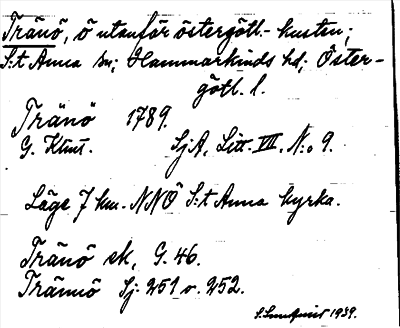 Tränö, ö utanför östergötl.- kusten;
S:t Anna sn; Hammarkinds hd; Öster-
götl. l.
Tränö 1789.
G. Ktm. SjA, Litt VII, N:o 9.
Läge 7 km. NNÖ S:t Anna kyrka.
Tränö ek, G. 46.
Trännö Sj: 251 o. 252.
S. Lundqvist 1939.